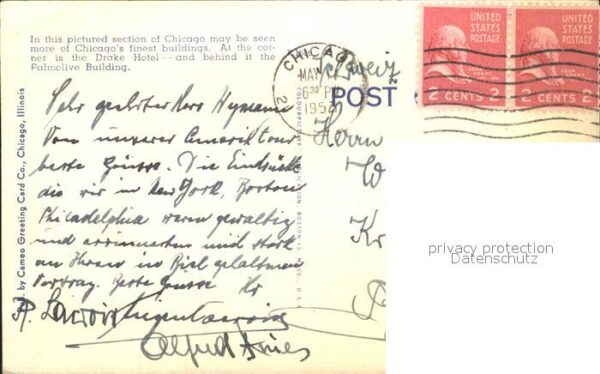 In this pictured section of Chicago may be seen
more of Chicago's finest buildings. At the cor-
ner is the Drake Hotel—and behind it the
Palmolive Building.
Pub. by Cameo Greeting Card Co., Chicago, Illinois
CHICAGO
MAY
6 30 P
1952
2
POST
UNITED
STATES
POSTAGE
2 CENTS 2
UNITED
STATES
POSTAGE
2 CENTS 2
Schweiz
Herrn
W
Kr
Sehr geehrter Herr Hymann
Von unserer Amerikatour
beste Grüsse. Die Eindrücke
die wir in New York, Boston
Philadelphia waren gewaltig
und erinnerten mich stark
an Ihren in Biel gehaltenen
Vortrag. Beste Grüsse Ihr
Alfred
privacy protection
Datenschutz